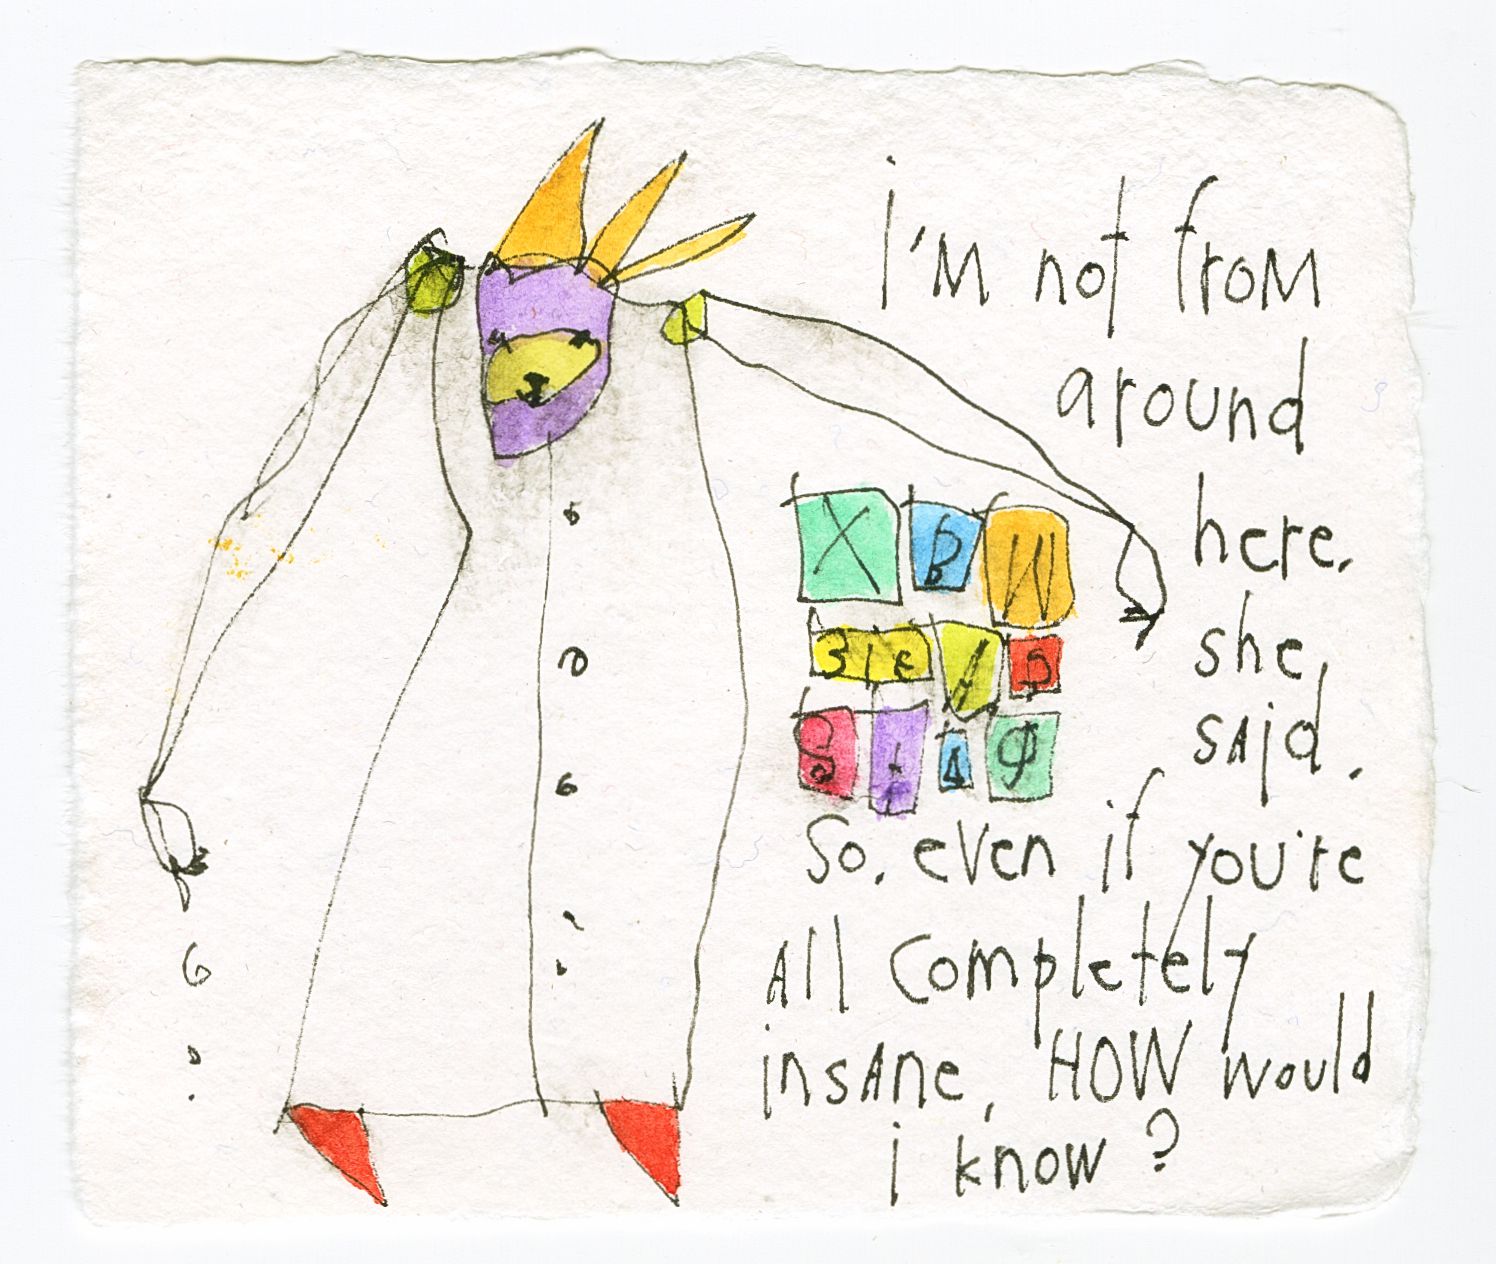 i'M not froM
around
here,
she
sAid.
X B W
3
S
So, even if you're
All completely
insAne, HOW would
i know?